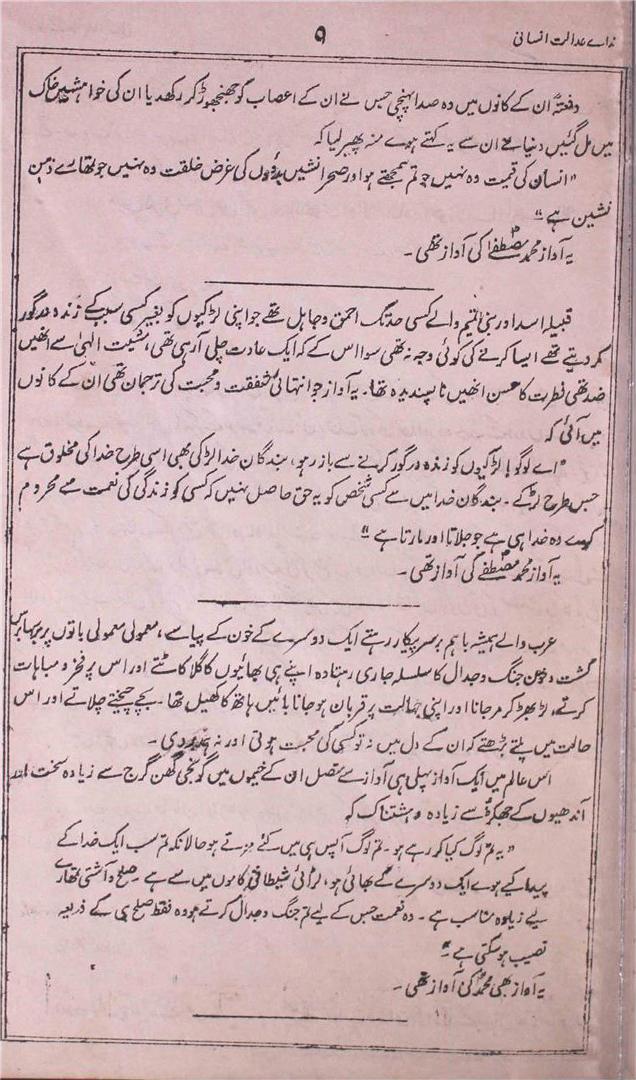 نداے عدالت انسانی
۹
دفعتہً ان کے کانوں میں وہ صدا پہنچی جس نے ان کے اعصاب کو جھنجھوڑ کر رکھدیا ان کی خواہشیں خاک
میں مل گئیں دنیا نے ان سے یہ کہتے ہوے منہ پھیر لیا کہ
"انسان کی قیمت وہ نہیں جو تم سمجھتے ہو اور صحرا نشیں بدوؤں کی غرض خلقت وہ نہیں جو تمھارے ذہن
نشین ہے"
یہ آواز محمد مصطفےٰؐ کی آواز تھی ۔
قبیلہ اسد اور بنی تمیم والے کسی حد تک احمق و جاہل تھے جو اپنی لڑکیوں کو بغیر کسی سبب کے زندہ درگور
کر دیتے تھے ایسا کرنے کی کوئی وجہ نہ تھی سوا اس کے کہ ایک عادت چلی آرہی تھی، مشیت الٰہی سے انھیں
ضد تھی فطرت کا حسن انھیں ناپسندیدہ تھا۔ یہ آواز جو انتہائی شفقت و محبت کی ترجمان تھی ان کے کانوں
میں آئی کہ
"اے لوگو! لڑکیوں کو زندہ درگور کرنے سے باز رہو، بندگان خدا لڑکی بھی اسی طرح خدا کی مخلوق ہے
جس طرح لڑکے ۔ بندگان خدا میں سے کسی شخص کو یہ حق حاصل نہیں کہ کسی کو زندگی کی نعمت سے محروم
کرے وہ خدا ہی ہے جو جلاتا اور مارتا ہے"
یہ آواز محمد مصطفےٰؐ کی آواز تھی ۔
عرب والے ہمیشہ باہم برسر پیکار رہتے ایک دوسرے کے خون کے پیاسے، معمولی معمولی باتوں پر برہا برس
کشت و خون جنگ و جدال کا سلسلہ جاری رہتا وہ اپنے ہی بھائیوں کا گلا کاٹتے اور اس پر فخر و مباہات
کرتے، لڑ بھڑ کر مرجانا اور اپنی جہالت پر قربان ہو جانا بائیں ہاتھ کا کھیل تھا۔ بچے چیختے چلاتے اور اس
حالت میں پلتے بڑھتے کہ ان کے دل میں نہ تو کسی کی محبت ہوتی اور نہ ہمدردی ۔
اس عالم میں ایک آواز پہلی ہی آواز سے متصل ان کے خیموں میں گونجی گھن گرج سے زیادہ سخت اور
آندھیوں کے جھکڑ سے زیادہ دہشتناک کہ
"یہ تم لوگ کیا کر رہے ہو۔ تم لوگ آپس ہی میں کٹے مرتے ہو حالانکہ تم سب ایک خدا کے
پیدا کیے ہوے ایک دوسرے کے بھائی ہو، لڑائی شیطانی کاموں میں سے ہے ۔ صلح و آشتی تمھارے
لیے زیادہ مناسب ہے ۔ وہ نعمت جس کے لیے تم جنگ و جدال کرتے ہو وہ فقط صلح ہی کے ذریعہ
نصیب ہو سکتی ہے"
یہ آواز بھی محمدؐ کی آواز تھی ۔